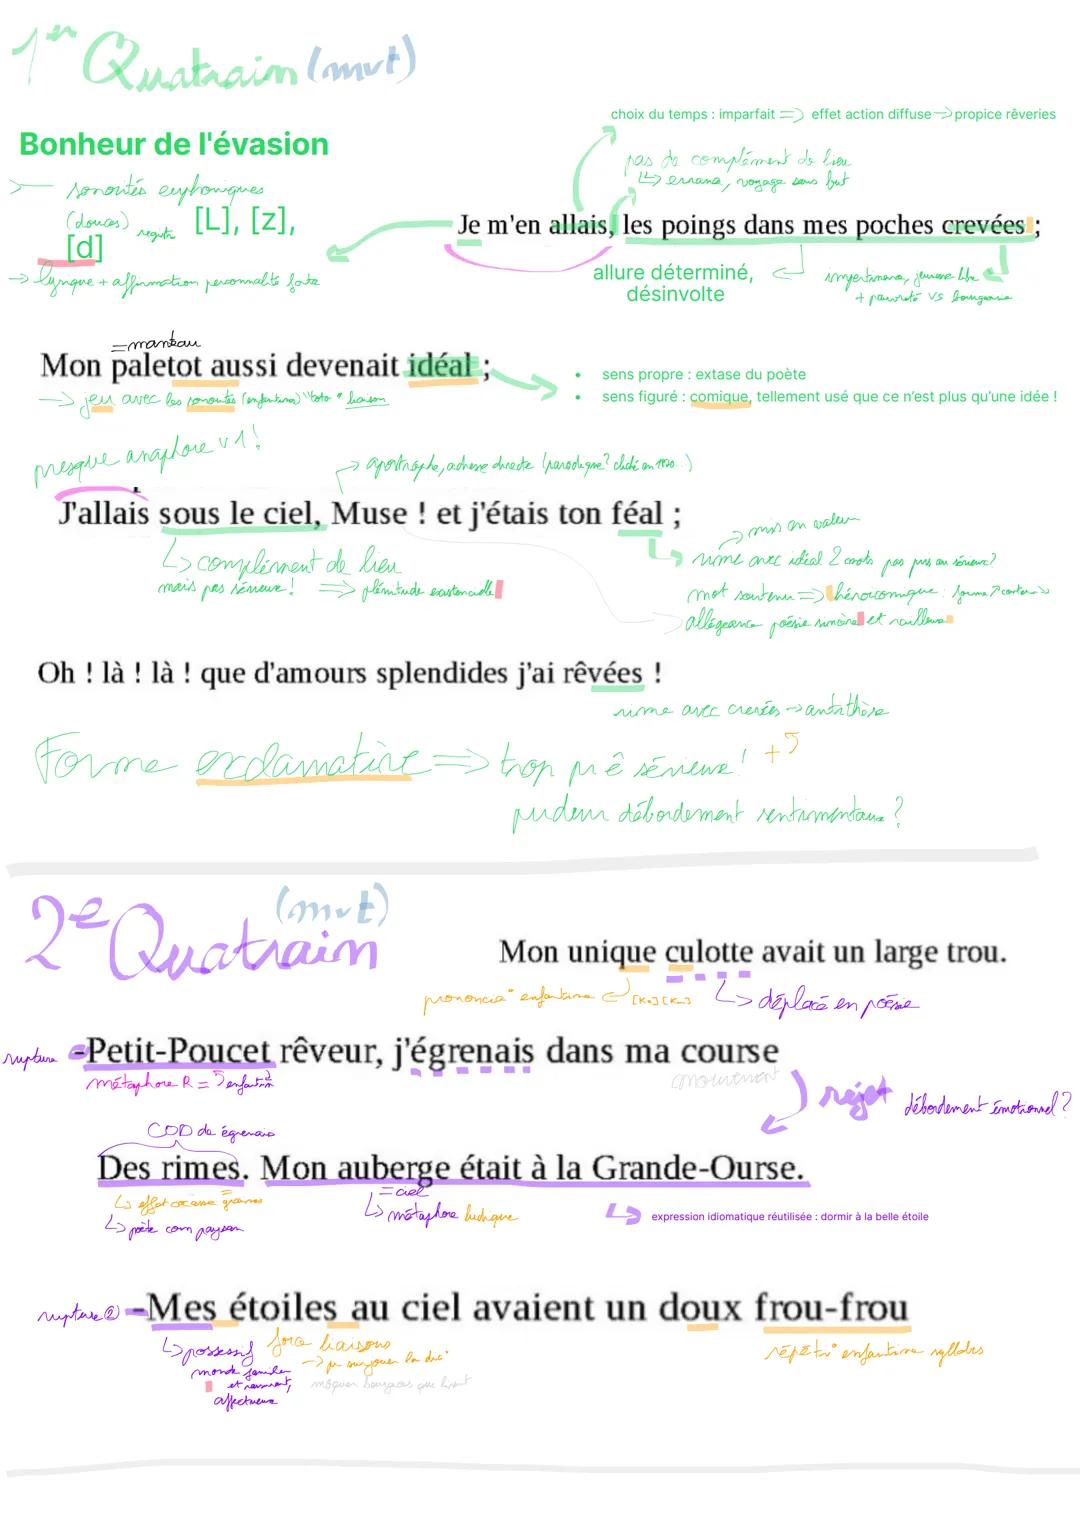 1er Quatrain (mvt)
choix du temps : imparfait => effet action diffuse -> propice rêveries
Bonheur de l'évasion
pas de complément de lieu
↳ errance, voyage sans but
>— sonorités euphoniques
(douces) [L], [z],
[d]
Je m'en allais, les poings dans mes poches crevées ;
-> lyrique + affirmation personnalité forte
allure déterminé,
désinvolte
impertinence, jeunesse libre
+ pauvreté VS bourgeoisie
=manteau
Mon paletot aussi devenait idéal ;
• sens propre : extase du poète
• sens figuré : comique, tellement usé que ce n'est plus qu'une idée !
-> jeu avec les sonorités (enfantines) "toto" liaison
presque anaphore v1!
-> apostrophe, adresse directe (parodique? cliché en 1870...)
J'allais sous le ciel, Muse ! et j'étais ton féal ;
-> mis en valeur
↳ complément de lieu
mais pas sérieux! => plénitude existencielle
rime avec idéal 2 mots pas pris au sérieux?
mot soutenu => héroïcomique : forme
allégeance poésie sincère et railleuse
Oh ! là ! là ! que d'amours splendides j'ai rêvées !
rime avec crevées -> antithèse
Forme exclamative => trop pr ê sérieux! +
pudeur débordement sentimentaux ?
2e Quatrain (mvt)
Mon unique culotte avait un large trou.
prononcia° enfantine
↳ déplacé en poésie
rupture -Petit-Poucet rêveur, j'égrenais dans ma course
métaphore R = enfantin
mouvement
rejet débordement émotionnel ?
COD de égrenais
Des rimes. Mon auberge était à la Grande-Ourse.
↳ effet cocasse = graines
↳ poète com paysan
= ciel
↳ métaphore ludique
expression idiomatique réutilisée : dormir à la belle étoile
rupture ② -Mes étoiles au ciel avaient un doux frou-frou
↳ possessif
monde familier
et rassurant,
affectueux
force liaisons
-> pr surjouer la dic°
moquer bourgeois que lisent
répéti° enfantine syllabes